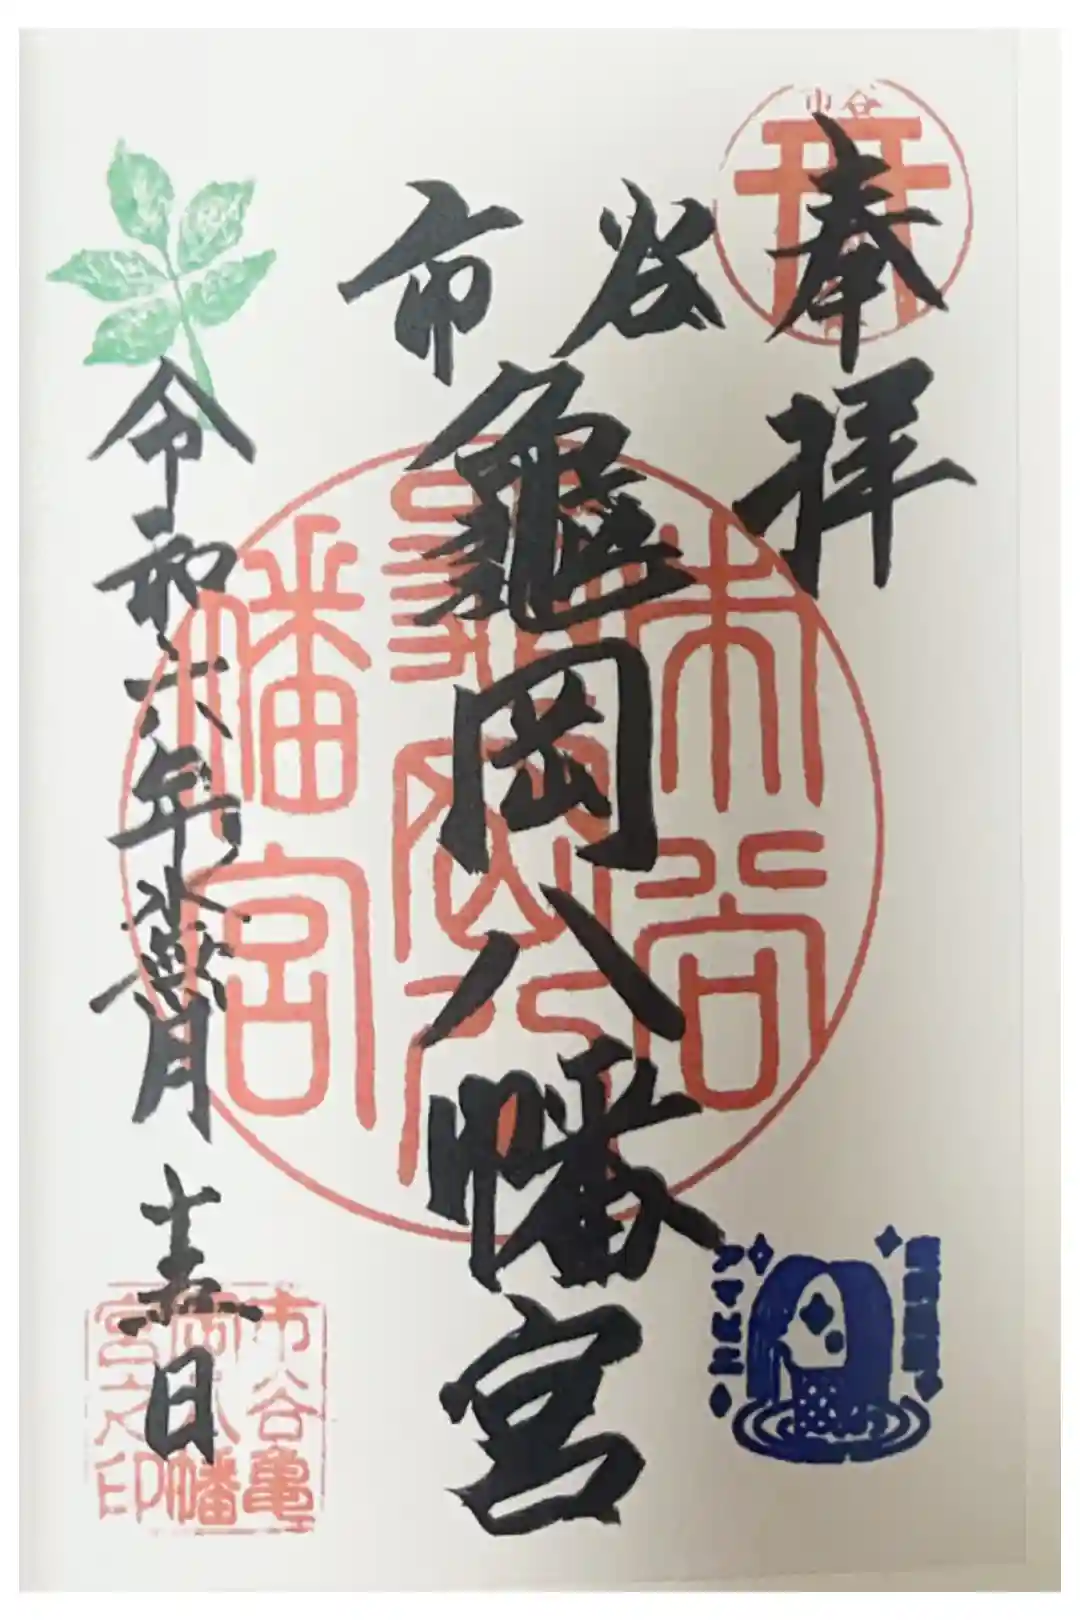 市谷
奉拝
市谷
龜岡八幡宮
令和六年水無月
日
市谷
亀岡八
幡宮
市谷亀
岡八幡
宮之印
アマビエ